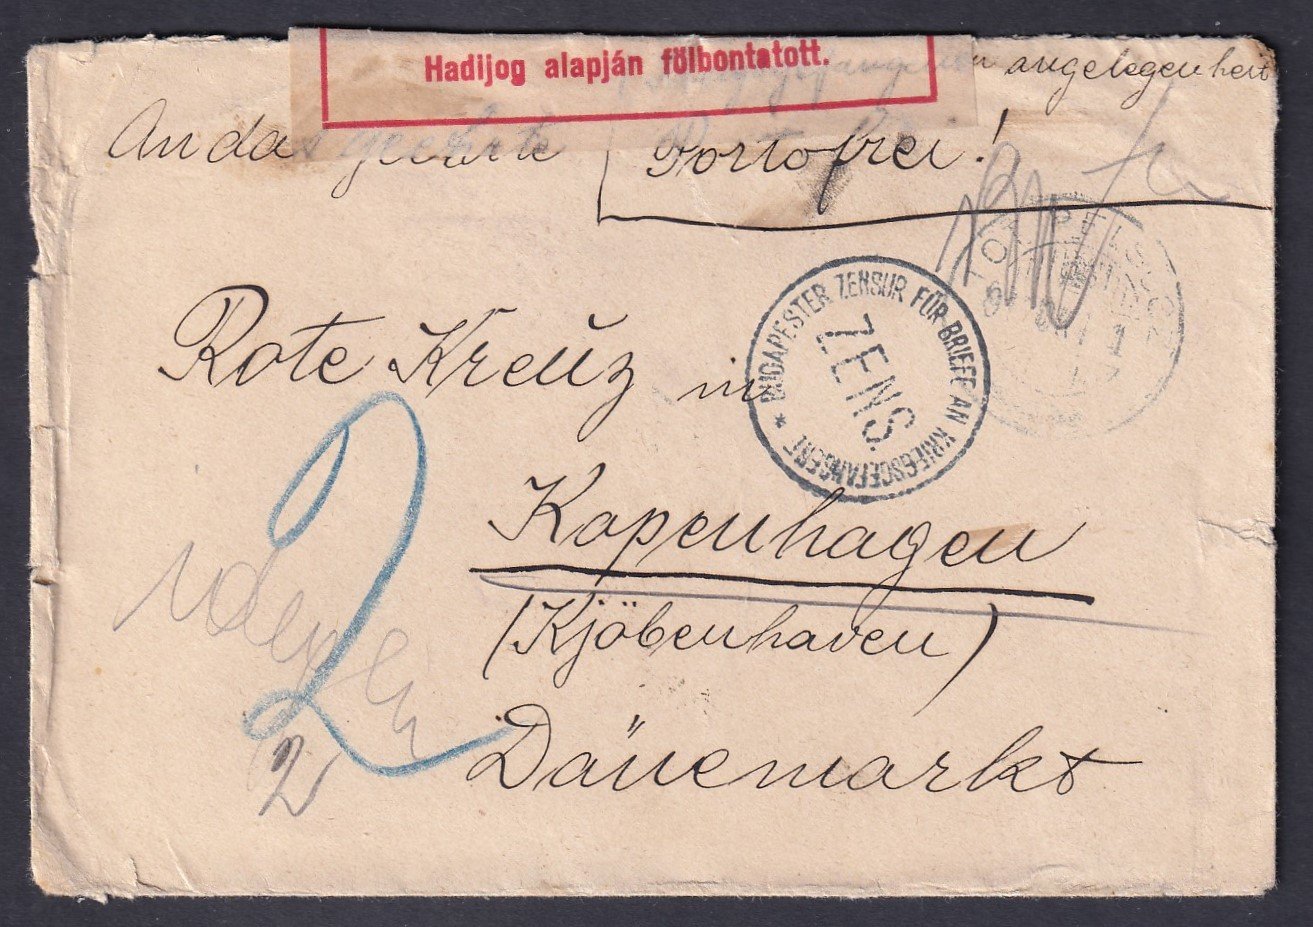 Hadijog alapján fölbontatott.
angelegenheit
An das geehrte Portofrei!
Rote Kreuz in
Kopenhagen
(Kjöbenhaven)
Dänemarkt
BUDAPESTER ZENSUR FÜR BRIEFE AN KRIEGSGEFANGENE *
ZENS.
2
2